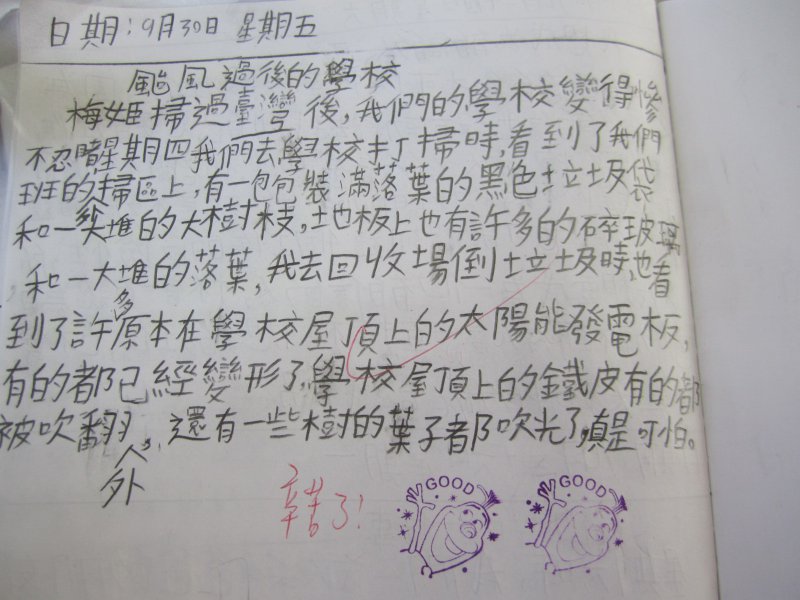 日期:9月30日 星期五
颱風過後的學校
梅姬掃過臺灣後,我們的學校變得慘
不忍睹星期四我們去學校打掃時,看到了我們
班的掃區上,有一包包裝滿落葉的黑色垃圾袋
和一大堆的大樹枝,地板上也有許多的碎玻璃
和一大堆的落葉,我去回收場倒垃圾時,也看
到了許多原本在學校屋頂上的太陽能發電板,
有的都已經變形了,學校屋頂上的鐵皮有的都
被吹翻,還有一些樹的葉子都吹光了,真是可怕。
外
辛苦了!
GOOD
GOOD